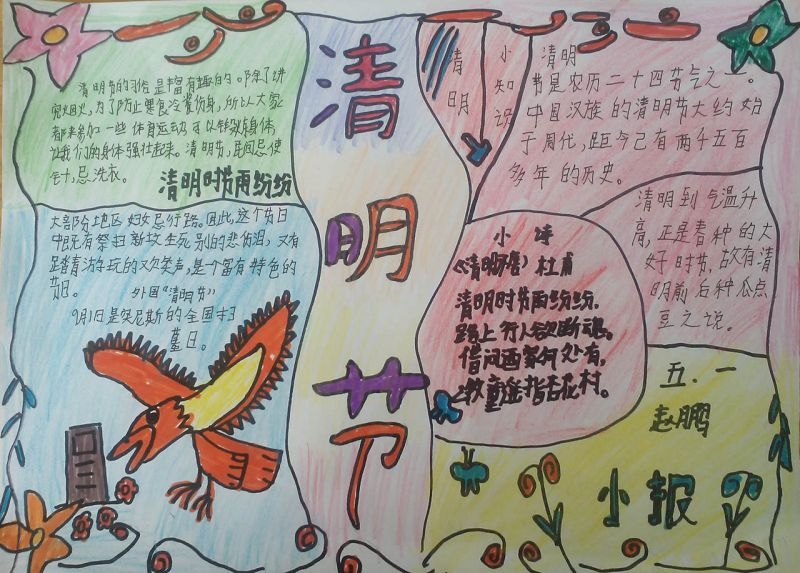 清明节的习俗是丰富有趣的。除了讲
究禁火,为了防止寒食冷餐伤身,所以大家
都来参加一些体育运动可以锻炼身体,
让我们的身体强壮起来。清明节,民间忌使
针,忌洗衣。
清明时节雨纷纷
大部份地区妇女忌行路。因此,这个节日
中既有祭扫新坟生死别的悲伤泪,又有
踏青游玩的欢笑声,是个富有特色的
节日。
外国“清明节”
9月1日是突尼斯的全国扫
墓日。
清明节
清明
小知识
清明
节是农历二十四节气之一。
中国汉族的清明节大约始
于周代,距今已有两千五百
多年的历史。
清明到气温升
高,正是春种的大
好时节,故有清
明前后种瓜点
豆之说。
小诗
《清明》杜甫
清明时节雨纷纷,
路上行人欲断魂。
借问酒家何处有,
牧童遥指杏花村。
五.一
赵鹏
小报